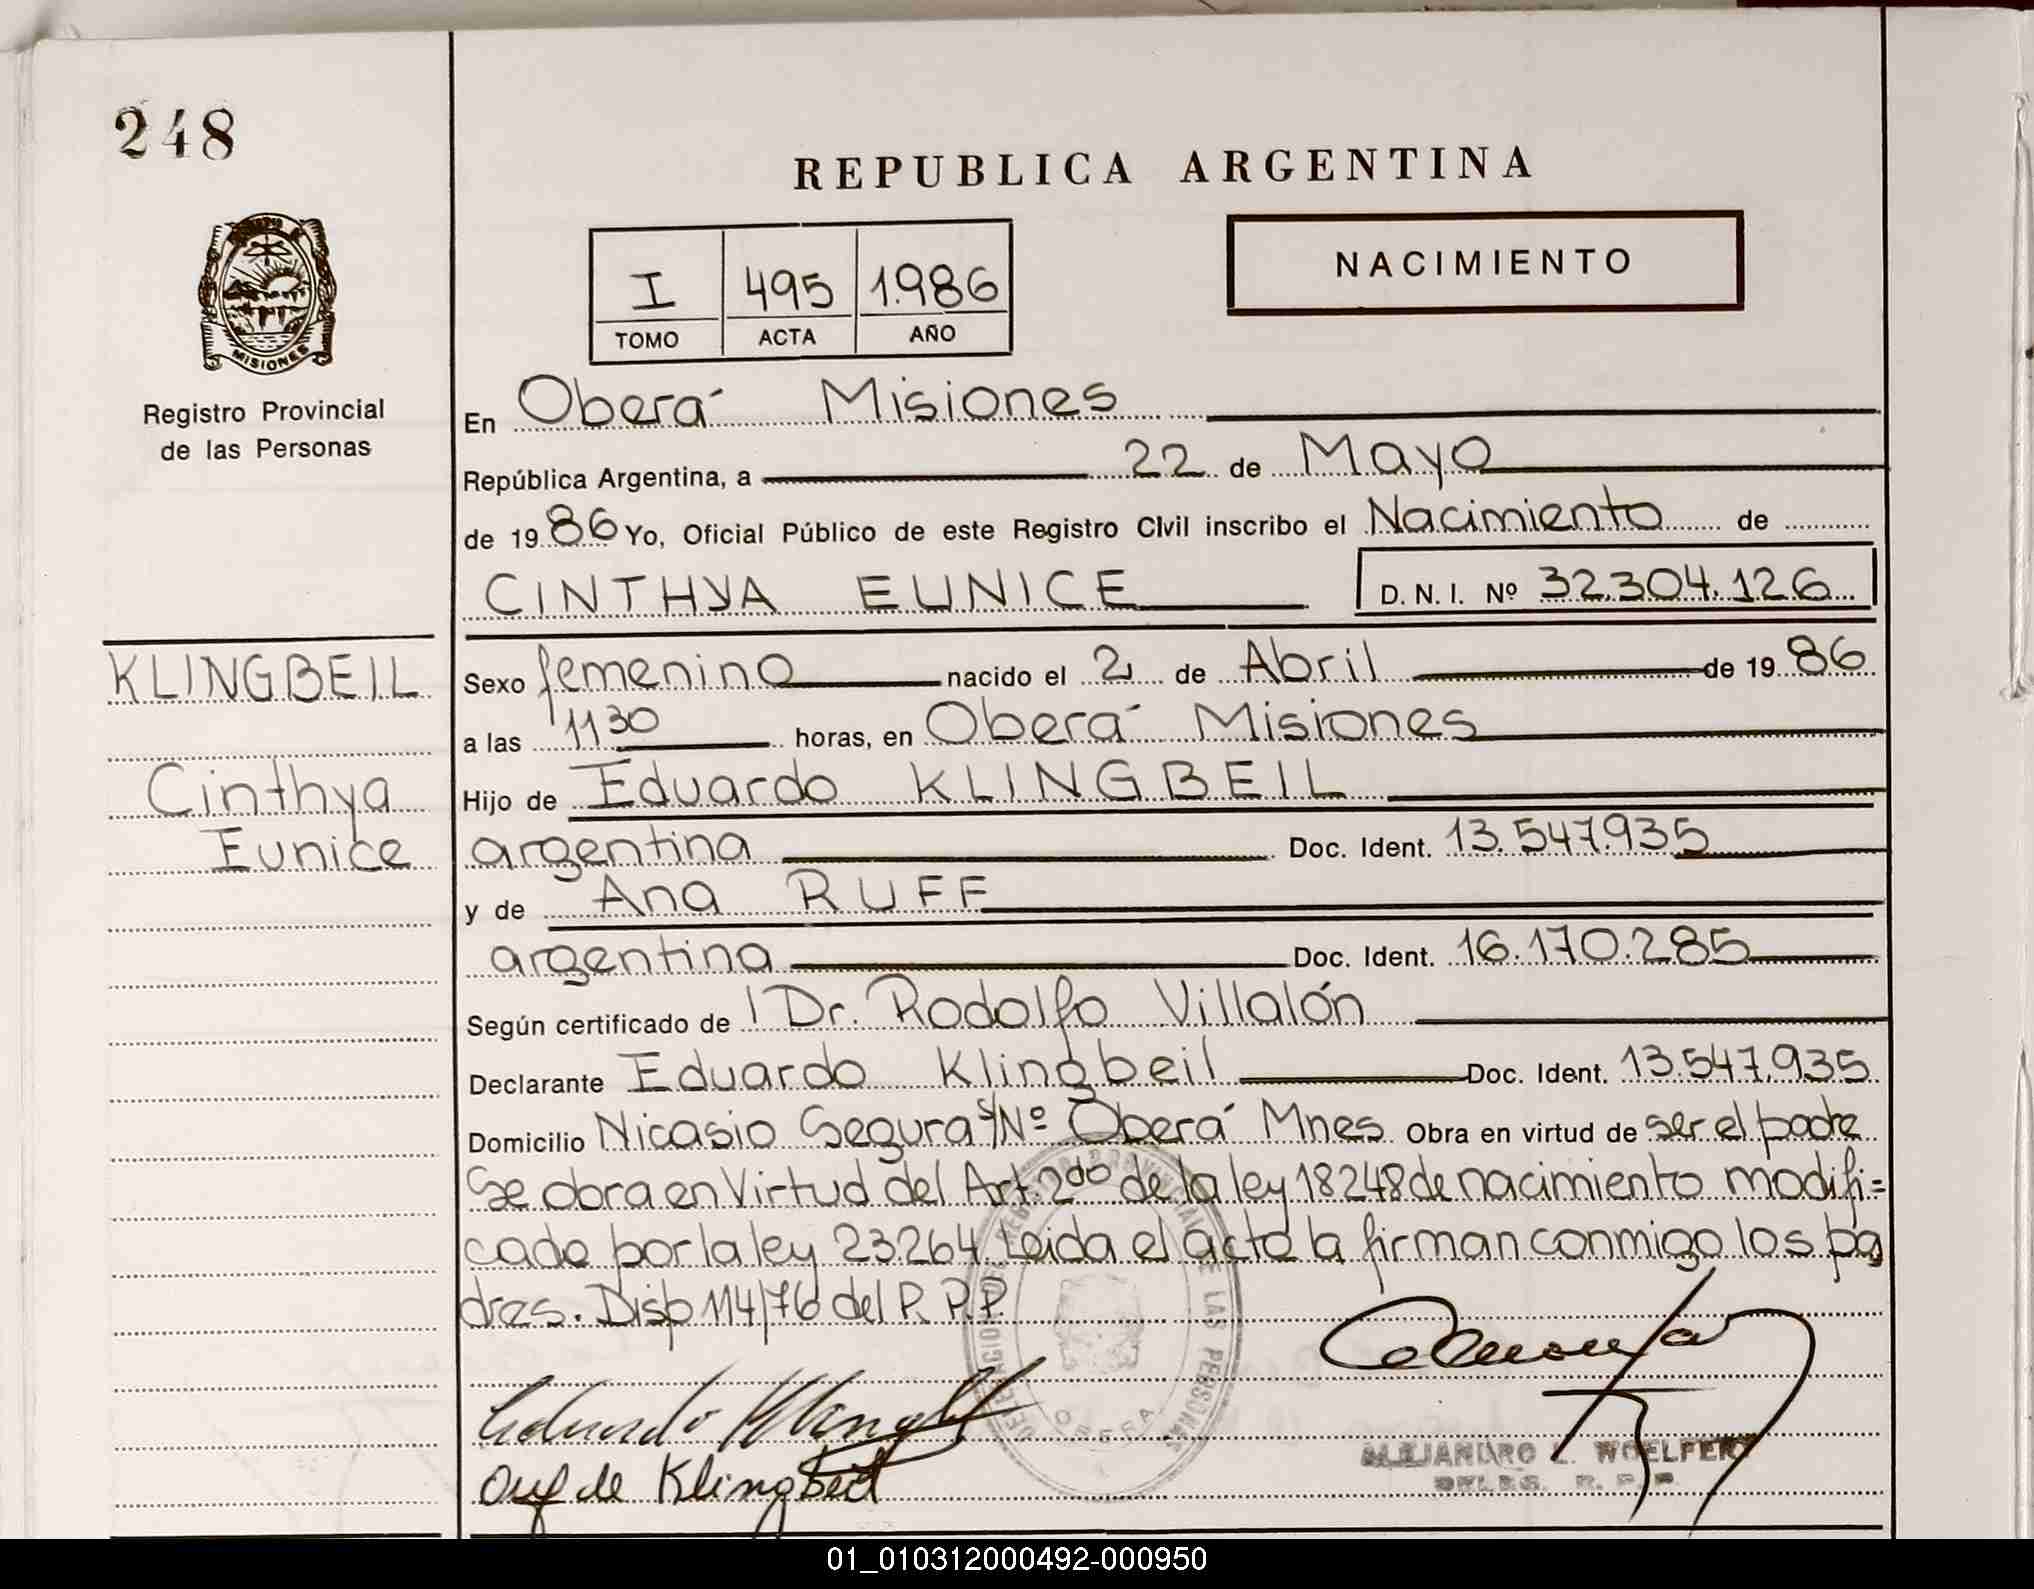 248
REPUBLICA ARGENTINA
NACIMIENTO
I 495 1.986
TOMO ACTA AÑO
MISIONES
Registro Provincial
de las Personas
En Oberá Misiones
República Argentina, a 22 de Mayo
de 1986 Yo, Oficial Público de este Registro Civil inscribo el Nacimiento de
CINTHYA EUNICE D. N. I. Nº 32.304.126
KLINGBEIL
Cinthya
Eunice
Sexo femenino nacido el 2 de Abril de 1986
a las 11 30 horas, en Oberá Misiones
Hijo de Eduardo KLINGBEIL
argentina Doc. Ident. 13.547.935
y de Ana RUFF
argentina Doc. Ident. 16.170.285
Según certificado de Dr. Rodolfo Villalón
Declarante Eduardo Klingbeil Doc. Ident. 13.547.935
Domicilio Nicasio Segura S/Nº Oberá Mnes Obra en virtud de ser el padre
Se obra en Virtud del Art. 2do de la ley 18248 de nacimiento modifi=
cado por la ley 23.264. Leida el acta la firman conmigo los pa
dres. Disp 114/76 del R. P. P.
Eduardo
de Klingbeil
ALEJANDRO L. WOELFERT
DELEG. R. P. P.
01_010312000492-000950